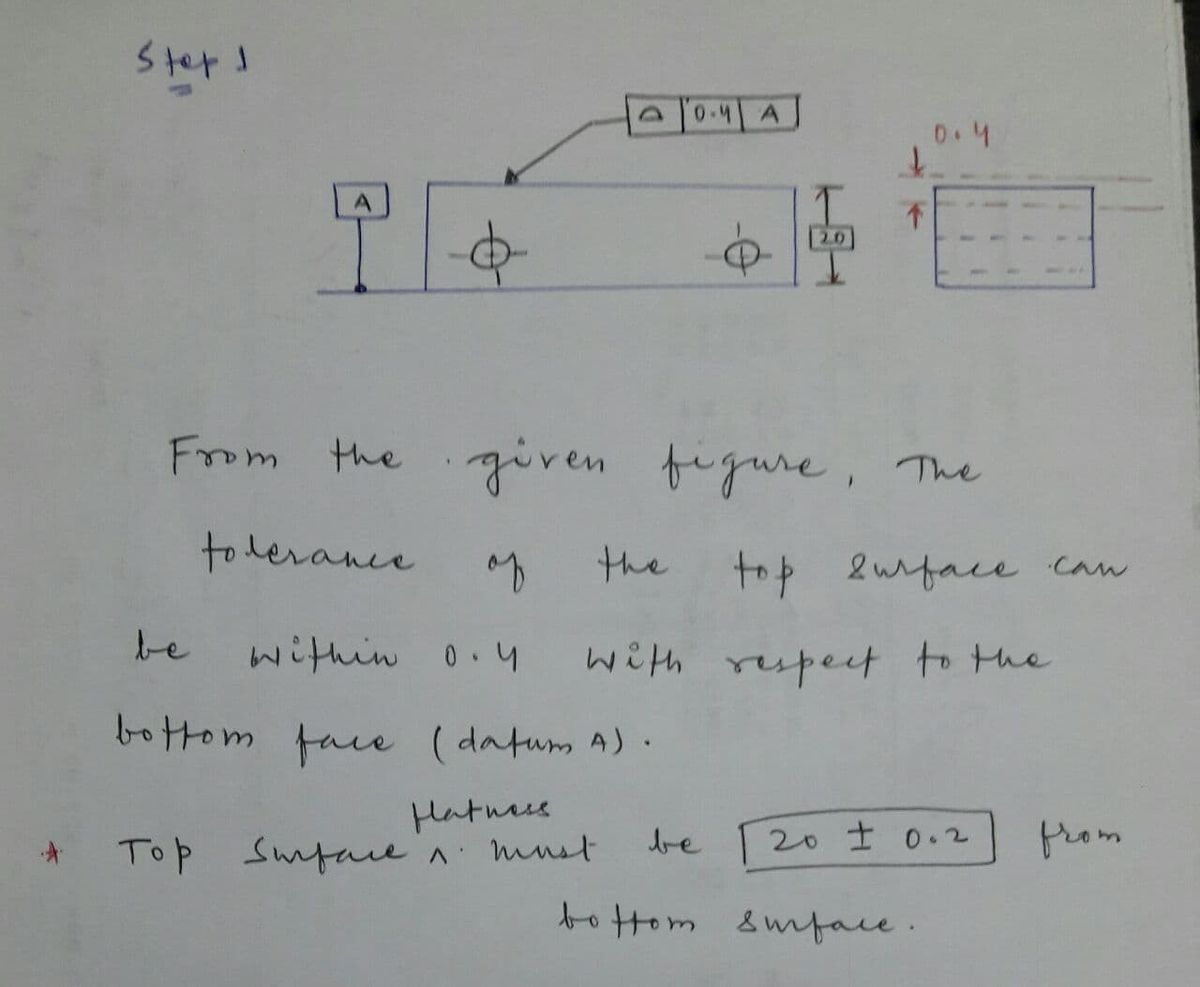 Step 1
⌓ 0.4 A
0.4
A
20
From the given figure, The
tolerance of the top surface can
be within 0.4 with respect to the
bottom face (datum A).
flatness
* Top Surface ^ must be 20 ± 0.2 from
bottom surface.